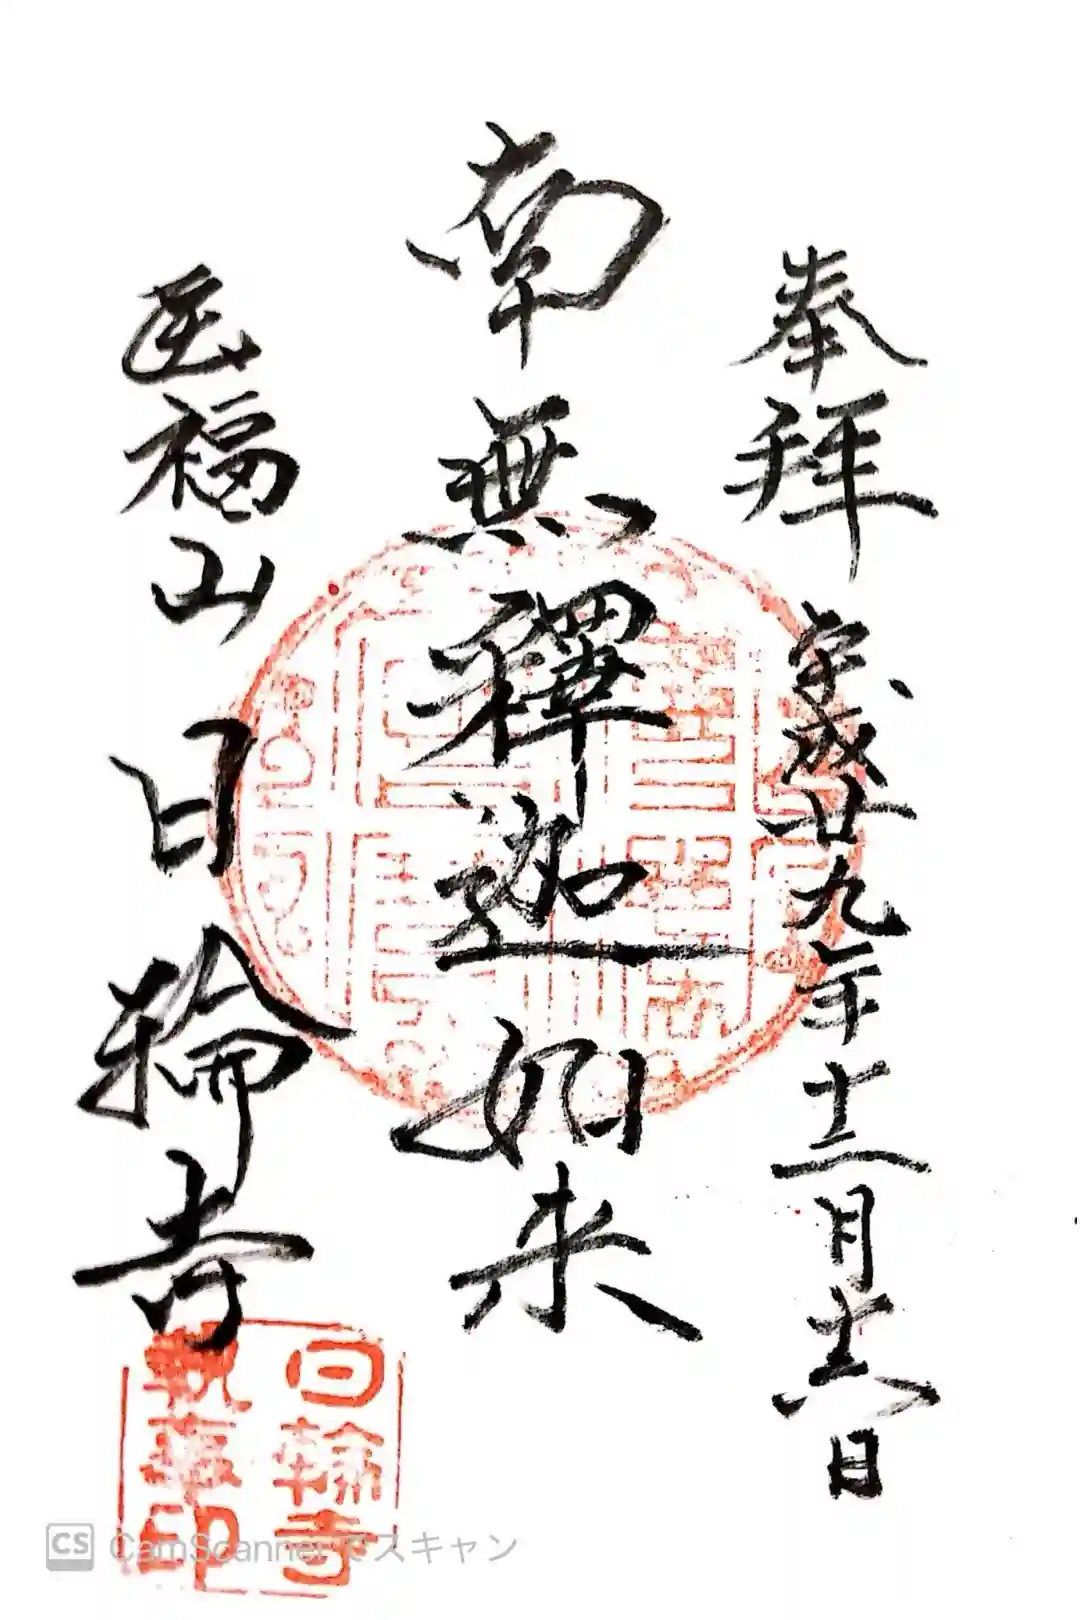 奉拝 平成廿九年十二月十六日
南無釋迦如来
福山 日輪寺
日輪寺
CS CamScannerでスキャン